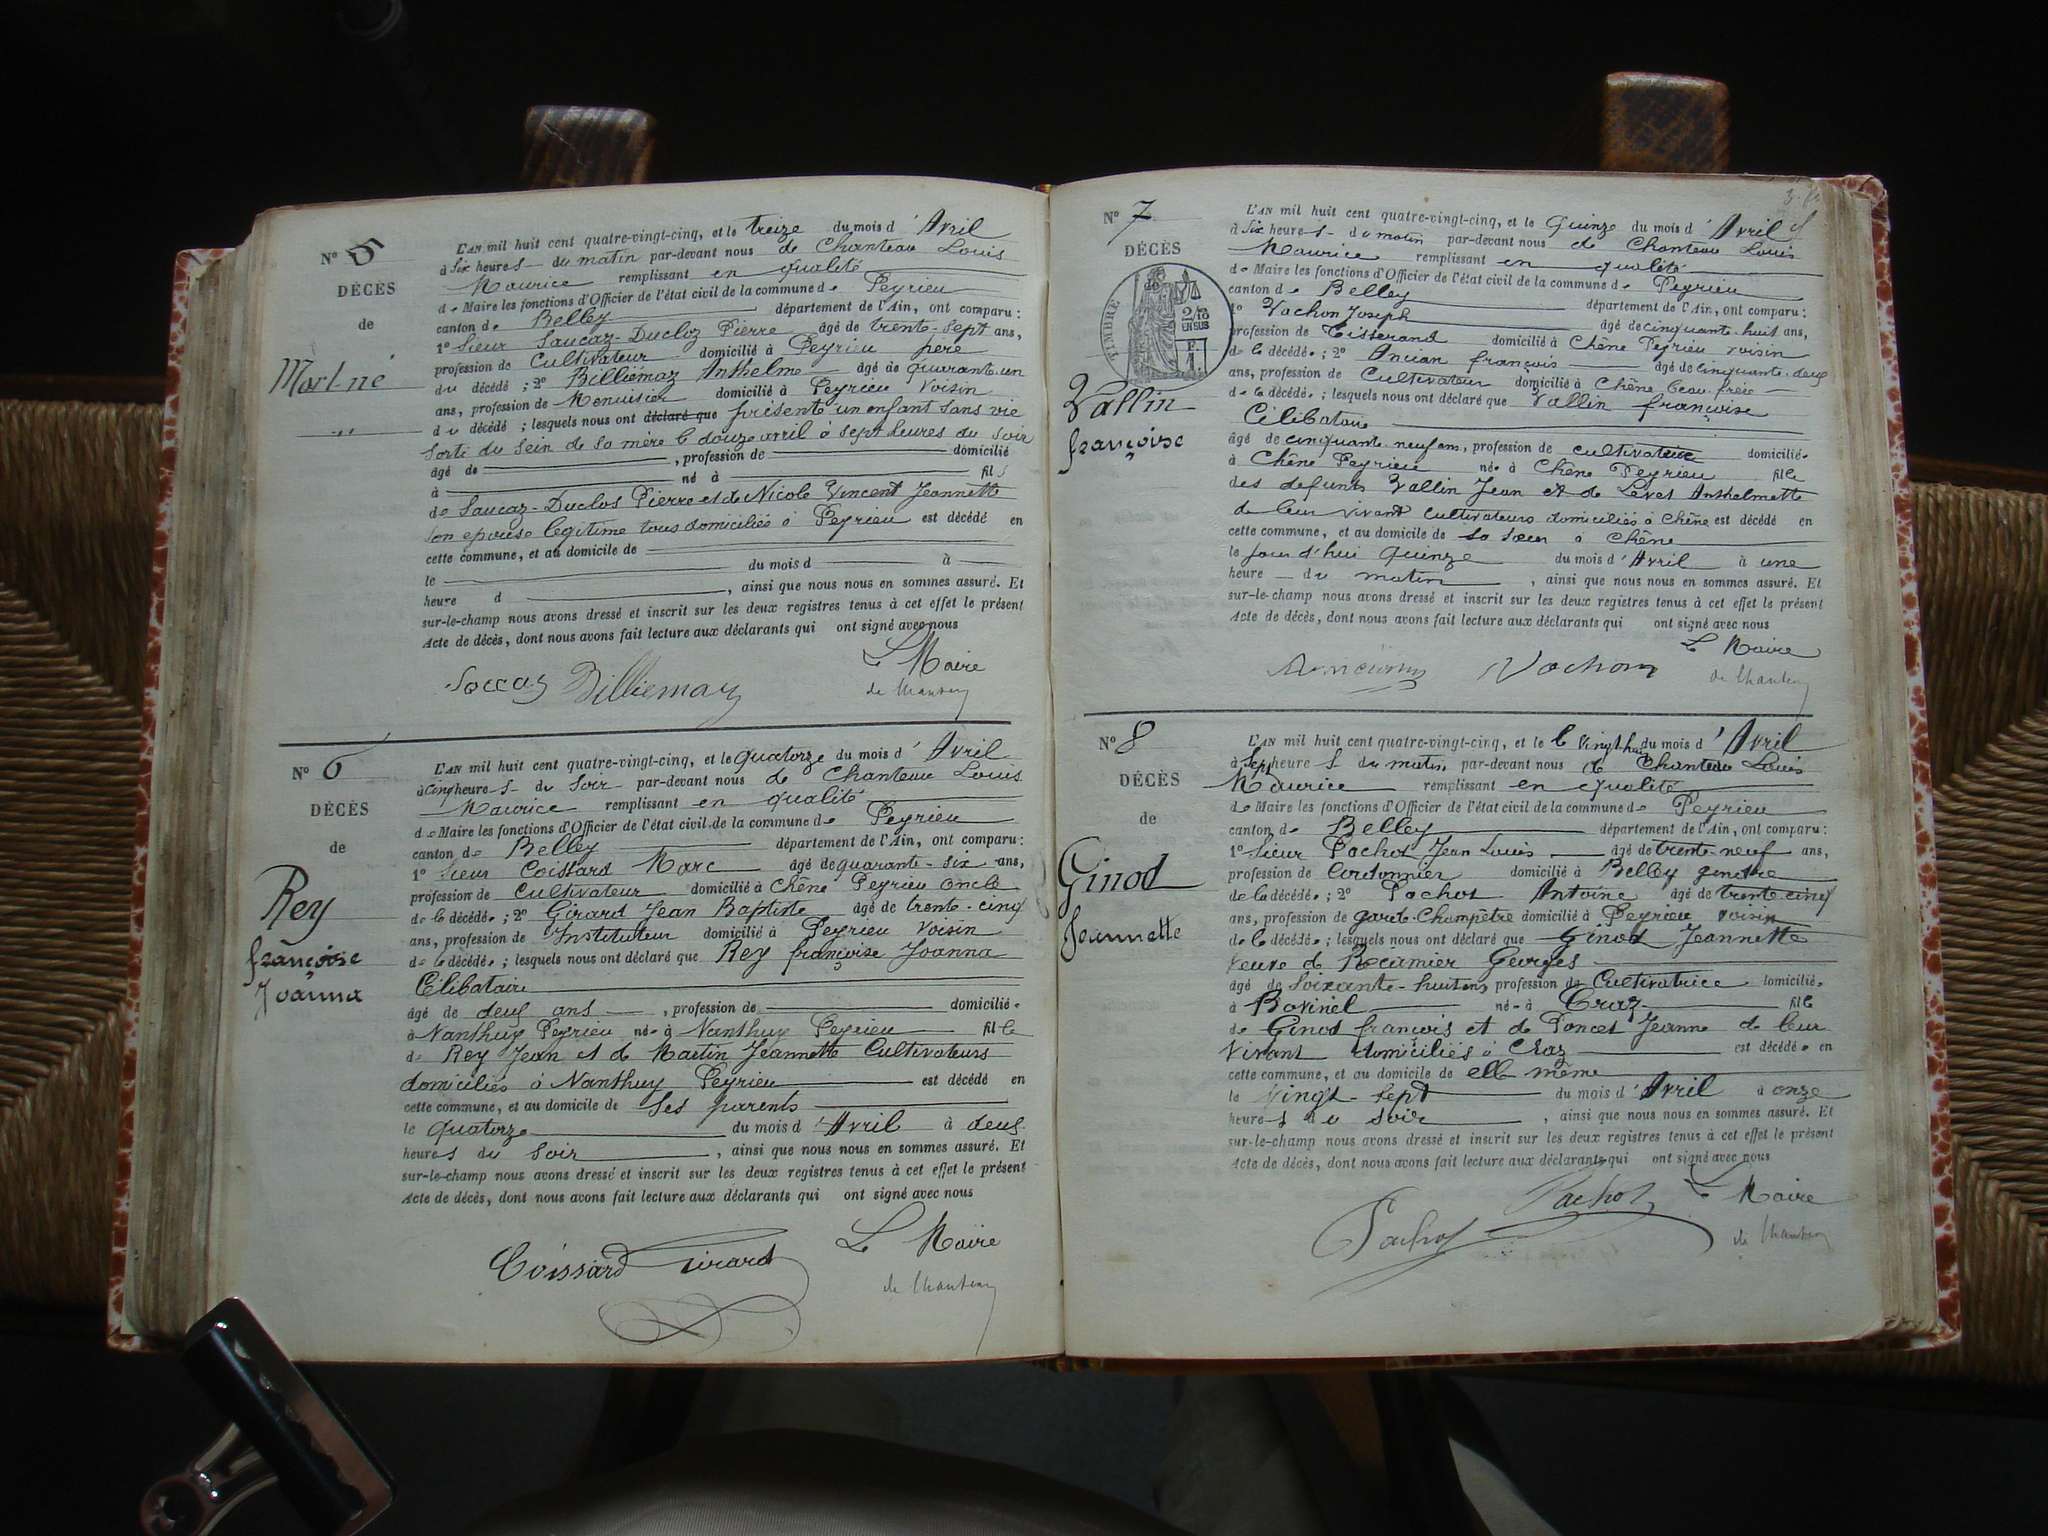 N° 5
DÉCÈS
de
Mort-né
L'AN mil huit cent quatre-vingt-cinq, et le treize du mois d'Avril
à Six heures du matin par-devant nous de Chanteau Louis
Maurice remplissant en qualité
de Maire les fonctions d'Officier de l'état civil de la commune de Peyrieu
canton de Belley département de l'Ain, ont comparu :
1° Sieur Saucaz-Ducloz Pierre âgé de trente-sept ans,
profession de Cultivateur domicilié à Peyrieu père
du décédé ; 2° Billiémaz Anthelme âgé de quarante un
ans, profession de Menuisier domicilié à Peyrieu Voisin
du décédé ; lesquels nous ont déclaré que présenté un enfant sans vie
sorti du sein de sa mère le douze avril à sept heures du soir
âgé de , profession de domicilié
à né à fils
de Saucaz-Duclos Pierre et de Nicole Vincent Jeannette
son epouse légitime tous domiciliés à Peyrieu est décédé en
cette commune, et au domicile de
le du mois d à
heure d , ainsi que nous nous en sommes assuré. Et
sur-le-champ nous avons dressé et inscrit sur les deux registres tenus à cet effet le présent
Acte de décès, dont nous avons fait lecture aux déclarants qui ont signé avec nous
Le Maire
Soccaz Billiemaz de Chanteau
N° 6
DÉCÈS
de
Rey
françoise
Joanna
L'AN mil huit cent quatre-vingt-cinq, et le quatorze du mois d'Avril
à cinq heures du Soir par-devant nous de Chanteau Louis
Maurice remplissant en qualité
de Maire les fonctions d'Officier de l'état civil de la commune de Peyrieu
canton de Belley département de l'Ain, ont comparu :
1° Sieur Coissard Marc âgé de quarante-six ans,
profession de Cultivateur domicilié à Chêne Peyrieu oncle
de la décédée ; 2° Girard Jean Baptiste âgé de trente-cinq
ans, profession de Instituteur domicilié à Peyrieu Voisin
de la décédée ; lesquels nous ont déclaré que Rey françoise Joanna
Célibataire
âgé de deux ans , profession de domiciliée
à Nanthuy Peyrieu née à Nanthuy Peyrieu fille
de Rey Jean et de Martin Jeannette Cultivateurs
domiciliés à Nanthuy Peyrieu est décédé en
cette commune, et au domicile de ses parents
le quatorze du mois d'Avril à deux
heures du soir , ainsi que nous nous en sommes assuré. Et
sur-le-champ nous avons dressé et inscrit sur les deux registres tenus à cet effet le présent
Acte de décès, dont nous avons fait lecture aux déclarants qui ont signé avec nous
Le Maire
Coissard Girard de Chanteau
N° 7
DÉCÈS
de
TIMBRE
2/10
EN SUS
Vallin
françoise
L'AN mil huit cent quatre-vingt-cinq, et le Quinze du mois d'Avril
à Six heures du matin par-devant nous de Chanteau Louis
Maurice remplissant en qualité
de Maire les fonctions d'Officier de l'état civil de la commune de Peyrieu
canton de Belley département de l'Ain, ont comparu :
1° Vachon Joseph âgé de cinquante-huit ans,
profession de Tisserand domicilié à Chêne Peyrieu voisin
de la décédée ; 2° françois âgé de cinquante-deux
ans, profession de Cultivateur domicilié à Chêne beau frère
de la décédée ; lesquels nous ont déclaré que Vallin françoise
Célibataire
âgé de cinquante-neuf ans, profession de cultivatrice domiciliée
à Chêne Peyrieu née à Chêne Peyrieu fille
des defunts Vallin Jean et de Levet Anthelmette
de leur vivant cultivateurs domiciliés à Chêne est décédé en
cette commune, et au domicile de sa soeur à Chêne
le jour d'hui quinze du mois d'Avril à une
heure du matin , ainsi que nous nous en sommes assuré. Et
sur-le-champ nous avons dressé et inscrit sur les deux registres tenus à cet effet le présent
Acte de décès, dont nous avons fait lecture aux déclarants qui ont signé avec nous
Le Maire
Vachon de Chanteau
N° 8
DÉCÈS
de
Ginod
Jeannette
L'AN mil huit cent quatre-vingt-cinq, et le le vingt-huit du mois d'Avril
à Sept heures du matin par-devant nous de Chanteau Louis
Maurice remplissant en qualité
de Maire les fonctions d'Officier de l'état civil de la commune de Peyrieu
canton de Belley département de l'Ain, ont comparu :
1° Sieur Pochot Jean Louis âgé de trente-neuf ans,
profession de Cordonnier domicilié à Belley gendre
de la décédée ; 2° Pochot Antoine âgé de trente-cinq
ans, profession de garde-Champêtre domicilié à Peyrieu voisin
de la décédée ; lesquels nous ont déclaré que Ginod Jeannette
Veuve de Récamier Georges
âgé de soixante-huit ans, profession de Cultivatrice domiciliée
à Bovinel née à Craz fille
de Ginod françois et de Poncet Jeanne de leur
vivant domiciliés à Craz est décédée en
cette commune, et au domicile de elle même
le vingt-sept du mois d'Avril à onze
heures du soir , ainsi que nous nous en sommes assuré. Et
sur-le-champ nous avons dressé et inscrit sur les deux registres tenus à cet effet le présent
Acte de décès, dont nous avons fait lecture aux déclarants qui ont signé avec nous
Le Maire
Pachot Pachot de Chanteau